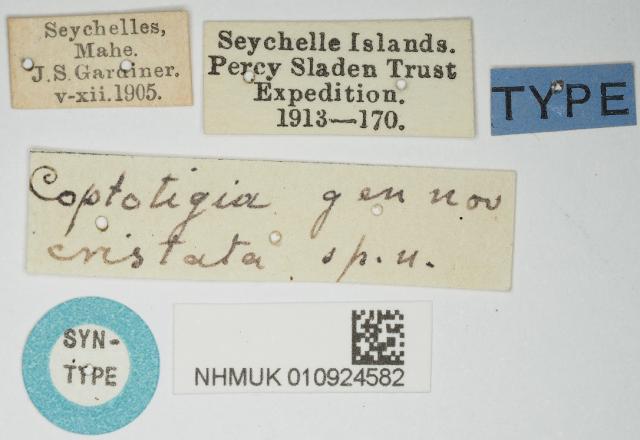 Seychelles,
Mahe.
J.S. Gardiner.
v-xii.1905.
Seychelle Islands.
Percy Sladen Trust
Expedition.
1913—170.
TYPE
Coptotigia gen nov
cristata sp. n.
SYN-
TYPE
NHMUK 010924582